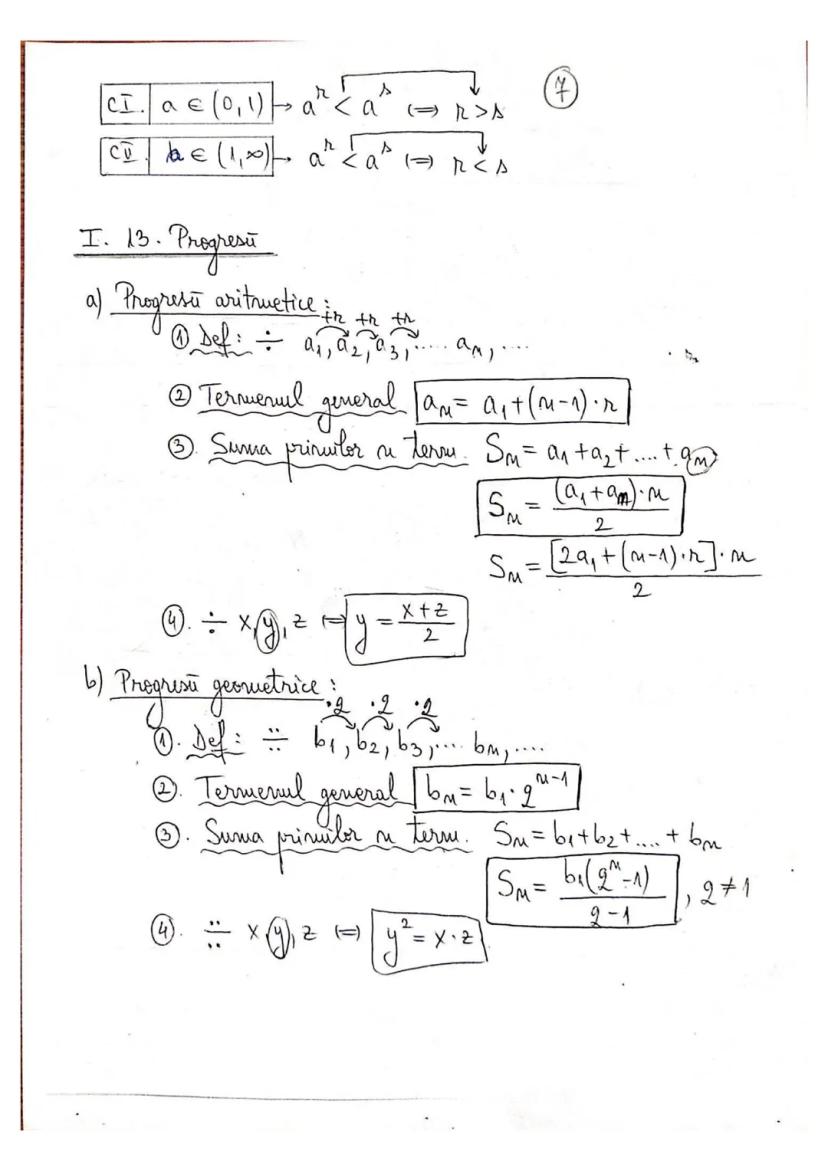 CI. a ∈ (0,1) → a^r < a^s ⟺ r > s ⑦
CII. a ∈ (1,∞) → a^r < a^s ⟺ r < s
I. 13. Progresii
a) Progresii aritmetice:
+r +r +r
① Def: ÷ a₁, a₂, a₃, ..... aₙ, ...
② Termenul general aₙ = a₁ + (n-1)·r
③. Suma primilor n term. Sₙ = a₁ + a₂ + .... + aₙ
Sₙ = (a₁ + aₙ)·n / 2
Sₙ = [2a₁ + (n-1)·r]·n / 2
④. ÷ x, y, z ⟺ y = x+z / 2
b) Progresii geometrice:
·q ·q ·q
①. Def: ∺ b₁, b₂, b₃, .... bₙ, ....
②. Termenul general bₙ = b₁·q^(n-1)
③. Suma primilor n term. Sₙ = b₁ + b₂ + .... + bₙ
Sₙ = b₁(qⁿ-1) / q-1, q ≠ 1
④. ∺ x, y, z ⟺ y² = x·z